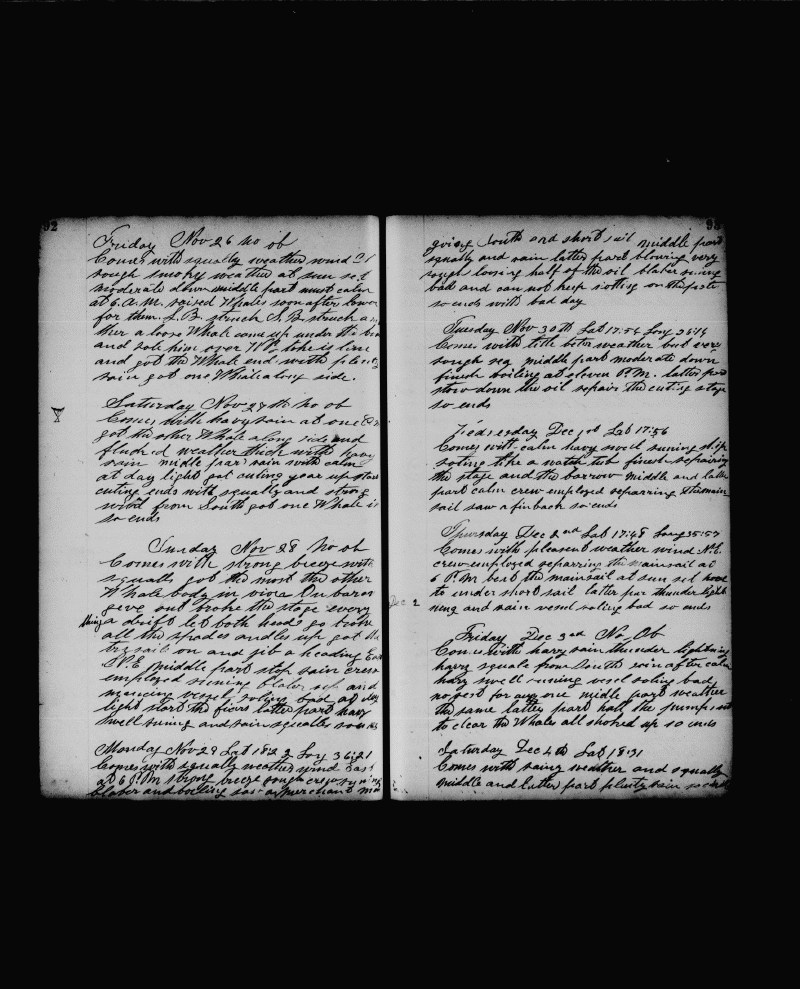 92
Friday Nov 26 no ob
Comes with squally weather wind
rough smoky weather at sun set
moderate down middle part most calm
at 6. A.M. raised Whales soon after lower
for them. L.B. struck S.B. struck
ther a loose Whale come up under the
and stole pipe over
and got the Whale ends with
rain got one Whale along side.
Saturday Nov 27th no ob
Comes with havy rain at one
got the other Whale along side and
fluched weather thick with havy
rain midle par rain with calm
at day light got cuting gear up start
cuting ends with squally and strong
wind from South got one Whale in
so ends
Sunday Nov 28 no ob
Comes with strong breeze with
squalls got the most the other
Whale body in
geve out broke the stage every
thing a drift let both heads go broke
all the spades and les up got the
try sail on and jib a heading
N.E. middle part stop rain crew
employed runing blaber up and
vessel roling bad at day
light start the fiers latter part havy
swell runing and rain squalles so ends
Monday Nov 29 Lat 18:2 2 Long 36:21
Comes with squally weather wind East
at 6 P.M strong breze rough crew
blaber and boiling saw a merchant
93
going South and short sail middle part
squally and rain latter part blowing very
rough loosing half of the oil blaber runing
bad and can not keep nothing on the
so ends with bad day
Tuesday Nov 30th Lat 17:54 Long 36:14
Comes with title beter weather but very
rough seg middle part moderate down
finesh boiling at eleven P.M. latter part
stow down the oil repair the cuting stage
so ends
Wednesday Dec 1st Lat 17:56
Comes with calm havy swell runing ship
roling like a water tub finesh repairing
the stage and the barrow middle and latter
part calm crew employed reparring the main
sail saw a finback so ends
Thursday Dec 2nd Lat 17:48 Long 35:57
Comes with pleasent weather wind N.E.
crew employed reparring the mainsail at
6 P.M. bent the mainsail at sun set
to under short sail latter par thunder light
ning and rain vessel roling bad so ends
Dec 2
Friday Dec 3rd No Ob
Comes with havy rain thunder lightning
havy squale from South rain after calm
havy swell runing vesel roling bad
no rest for any one midle part weather
the same latter part haul the pumps
to clear the Whales all shoked up so ends
Saturday Dec 4th Lat 18:31
Comes with rainy weather and squally
middle and latter part plenty rain so ends